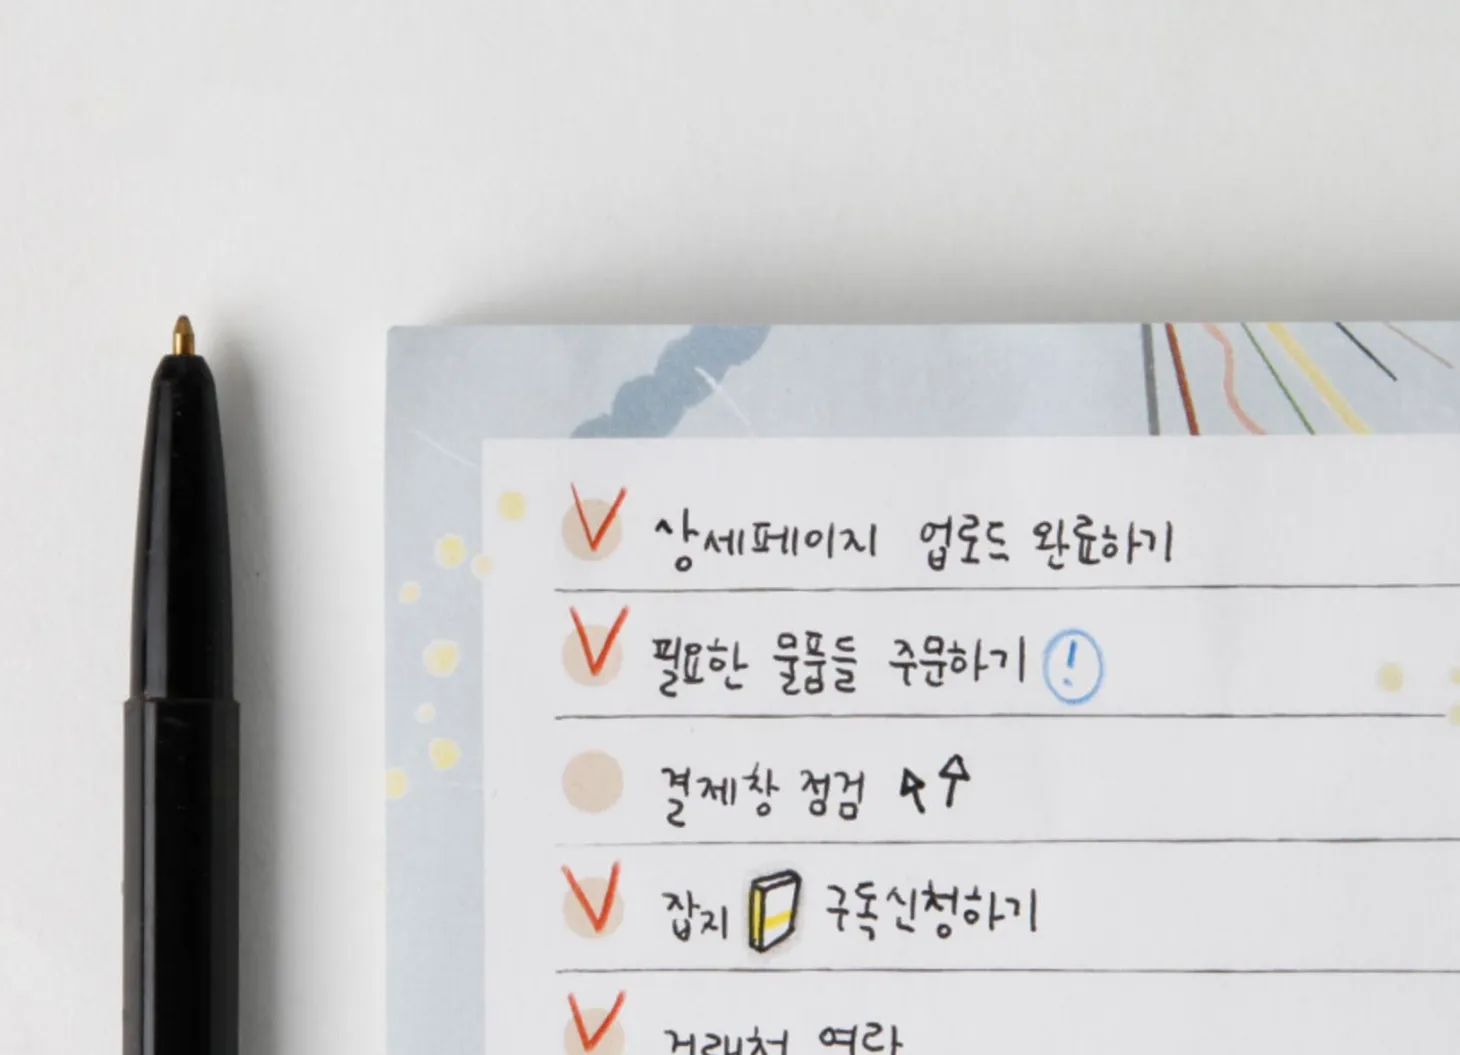 상세페이지 업로드 완료하기
필요한 물품들 주문하기 !
결제창 점검
잡지 구독신청하기
거래처